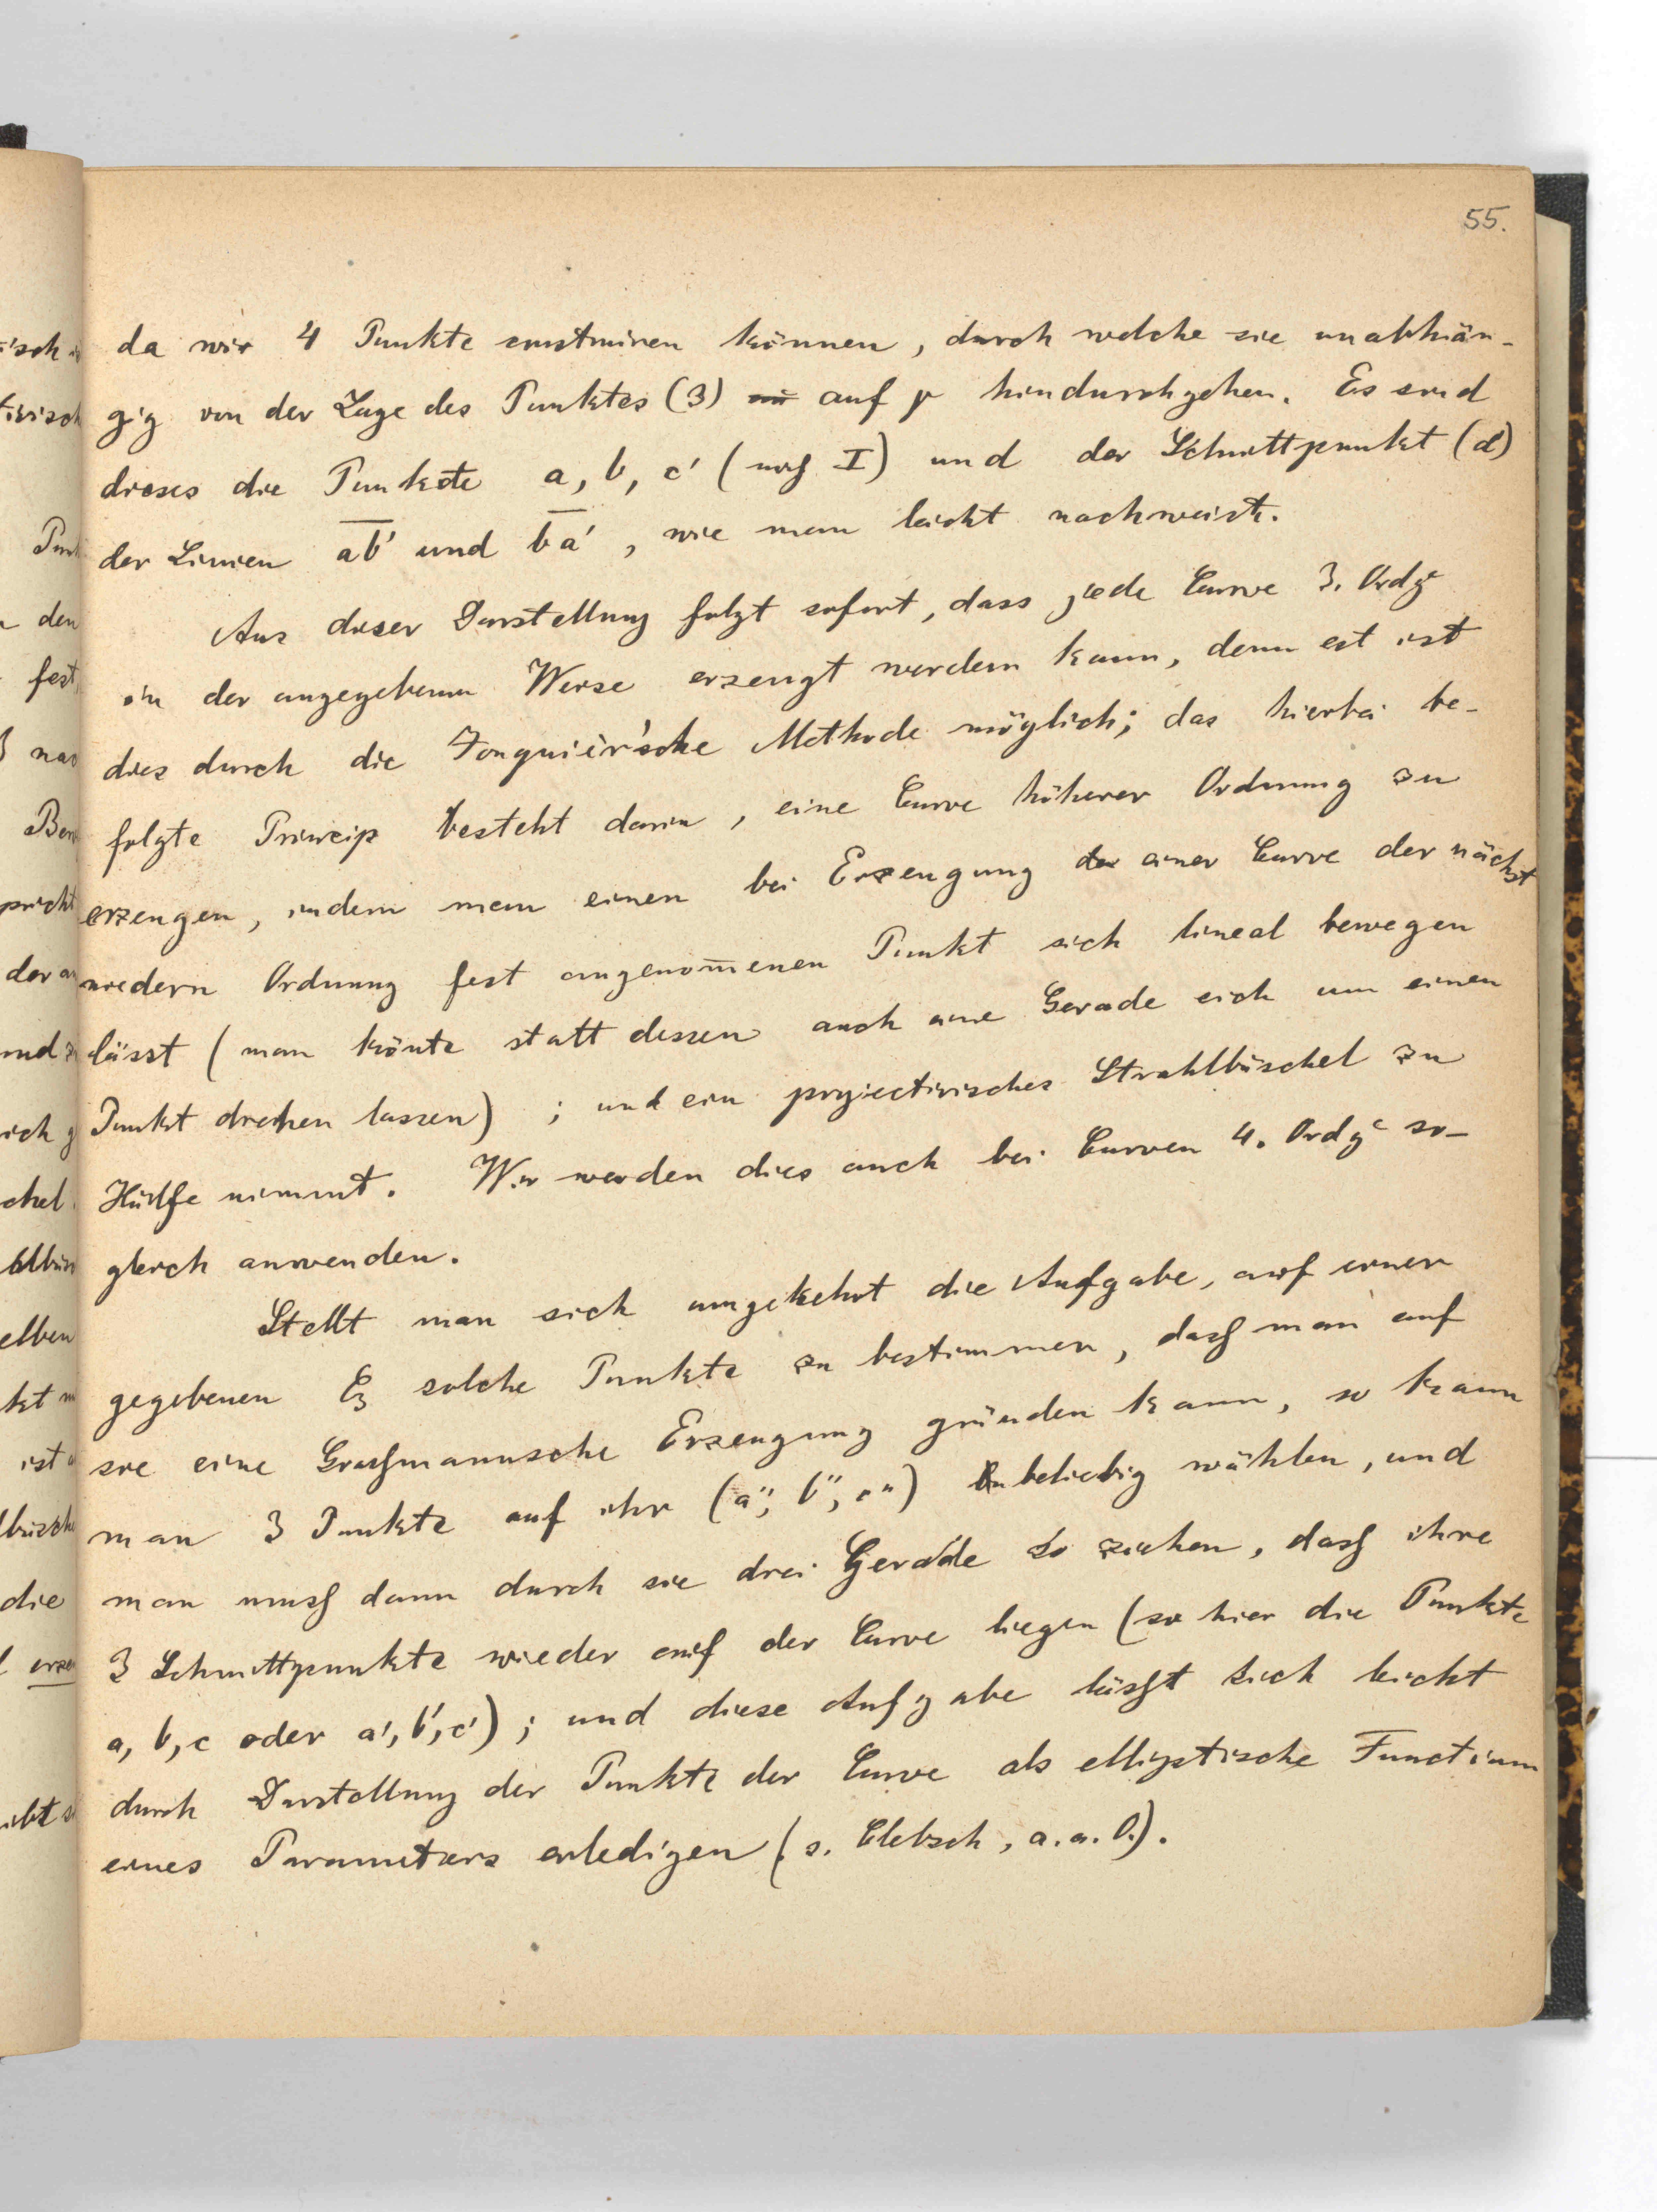 55.
da wir 4 Punkte construiren können, durch welche sie unabhän-
gig von der Lage des Punktes (3) auf p hindurchgehen. Es sind
dieses die Punkte a, b, c' ( I) und der Schnittpunkt (d)
der Linien ab' und ba', wie man leicht nachweist.
Aus dieser Darstellung folgt sofort, dass jede Curve 3. Ordg
in der angegebenen Weise erzeugt werden kann, denn est ist
dies durch die Jonquièr'sche Methode möglich; das hierbei be-
folgte Princip besteht darin, eine Curve höherer Ordnung zu
erzeugen, indem man einen bei Erzeugung der einer Curve der nächst
niedern Ordnung fest angenom̅enen Punkt sich lineal bewegen
lässt (man kön̅te statt dessen auch eine Gerade sich um einen
Punkt drehen lassen) ; und ein projectivisches Strahlbüschel zu
Hülfe nimmt. Wir werden dies auch bei Curven 4. Ordg so-
gleich anwenden.
Stellt man sich umgekehrt die Aufgabe, auf einer
gegebenen C3 solche Punkte zu bestimmen, daß man auf
sie eine Graßmannsche Erzeugung gründen kann, so kann
man 3 Punkte auf ihr (a'', b'', c'') beliebig wählen, und
man muß dann durch sie drei Gerade so ziehen, daß ihre
3 Schnittpunkte wieder auf der Curve liegen (so hier die Punkte
a, b, c oder a', b', c') ; und diese Aufgabe läßt sich leicht
durch Darstellung der Punkte der Curve als elliptische Function
eines Parameters erledigen (s. Clebsch, a. a. O.).